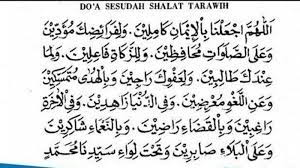 DO'A SESUDAH SHALAT TARAWIH
اَللّٰهُمَّ اجْعَلْنَا بِالْإِيْمَانِ كَامِلِيْنَ. وَلِفَرَائِضِكَ مُؤَدِّيْنَ
وَعَلَى الصَّلَوَاتِ مُحَافِظِيْنَ. وَلِلزَّكَاةِ فَاعِلِيْنَ. وَلِمَا
عِنْدَكَ طَالِبِيْنَ. وَلِعَفْوِكَ رَاجِيْنَ. وَبِالْهُدَى مُتَمَسِّكِيْنَ
وَعَنِ اللَّغْوِ مُعْرِضِيْنَ. وَفِي الدُّنْيَا زَاهِدِيْنَ. وَفِي الْآخِرَةِ
رَاغِبِيْنَ. وَبِالْقَضَاءِ رَاضِيْنَ. وَبِالنَّعْمَاءِ شَاكِرِيْنَ
وَعَلَى الْبَلَاءِ صَابِرِيْنَ. وَتَحْتَ لِوَاءِ سَيِّدِنَا مُحَمَّدٍ